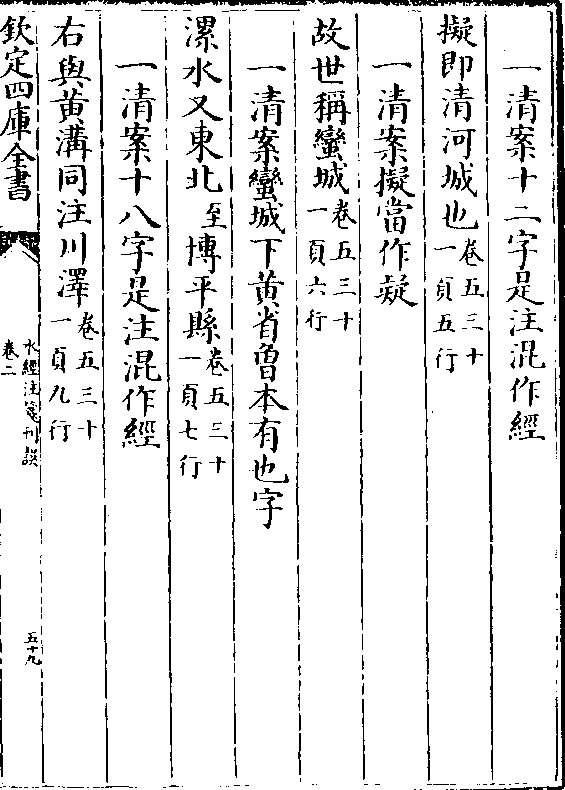 一清案十二字是注混作經
擬即清河城也卷五三十一頁五行
一清案擬當作疑
故世稱蠻城卷五三十一頁六行
一清案蠻城下黄省曾本有也字
漯水又東北至博平縣卷五三十一頁七行
一清案十八字是注混作經
右與黄溝同注川澤卷五三十一頁九行
欽定四庫全書
水經注箋刊誤
卷二
五十九